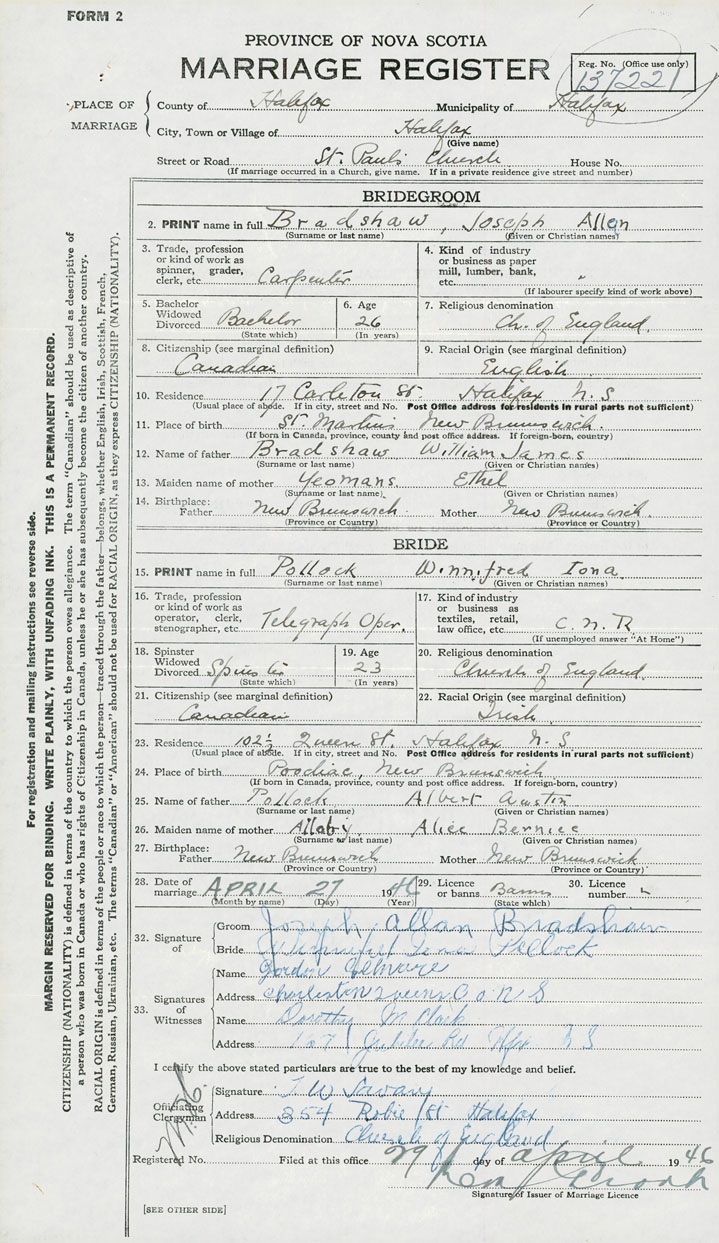 FORM 2
PROVINCE OF NOVA SCOTIA
MARRIAGE REGISTER
Reg. No. (Office use only)
137221
PLACE OF MARRIAGE
County of Halifax Municipality of Halifax
City, Town or Village of Halifax
(Give name)
Street or Road St. Paul's Church House No.
(If marriage occurred in a Church, give name. If in a private residence give street and number)
BRIDEGROOM
2. PRINT name in full Bradshaw, Joseph Allen
(Surname or last name) (Given or Christian names)
3. Trade, profession or kind of work as spinner, grader, clerk, etc. Carpenter
4. Kind of industry or business as paper mill, lumber, bank, etc. "
(If labourer specify kind of work above)
5. Bachelor Widowed Divorced Bachelor
(State which)
6. Age 26
(In years)
7. Religious denomination
Ch. of England.
8. Citizenship (see marginal definition)
Canadian
9. Racial Origin (see marginal definition)
English
10. Residence 17 Carleton St. Halifax N.S
(Usual place of abode. If in city, street and No. Post Office address for residents in rural parts not sufficient)
11. Place of birth St. Martins New Brunswick.
(If born in Canada, province, county and post office address. If foreign-born, country)
12. Name of father Bradshaw William James
(Surname or last name) (Given or Christian names)
13. Maiden name of mother Yeomans Ethel
(Surname or last name) (Given or Christian names)
14. Birthplace:
Father New Brunswick Mother New Brunswick.
(Province or Country) (Province or Country)
BRIDE
15. PRINT name in full Pollock Winnifred Iona
(Surname or last name) (Given or Christian names)
16. Trade, profession or kind of work as operator, clerk, stenographer, etc Telegraph Oper.
17. Kind of industry or business as textiles, retail, law office, etc. C.N.R
(If unemployed answer "At Home")
18. Spinster Widowed Divorced
(State which)
19. Age 23
(In years)
20. Religious denomination
Church of England.
21. Citizenship (see marginal definition)
Canadian
22. Racial Origin (see marginal definition)
Irish
23. Residence 102½ Queen St. Halifax N.S
(Usual place of abode. If in city, street and No. Post Office address for residents in rural parts not sufficient)
24. Place of birth Poodiac, New Brunswick
(If born in Canada, province, county and post office address. If foreign-born, country)
25. Name of father Pollock Albert Austin
(Surname or last name) (Given or Christian names)
26. Maiden name of mother Allaby Alice Bernice
(Surname or last name) (Given or Christian names)
27. Birthplace:
Father New Brunswick Mother New Brunswick
(Province or Country) (Province or Country)
28. Date of marriage APRIL 27 1946
(Month by name) (Day) (Year)
29. Licence or banns Banns
(State which)
30. Licence number
32. Signature of
Groom Joseph Allan Bradshaw
Bride Winnifred Iona Pollock
33. Signatures of Witnesses
Name Gordon
Address Charleston Queens Co N S
Name Dorothy M
Address Jubilee Rd Hfx N S
I certify the above stated particulars are true to the best of my knowledge and belief.
Officiating Clergyman
Signature T. W. Savary
Address 354 Robie St Halifax
Religious Denomination Church of England
Registered No. Filed at this office 29 day of april 1946
Signature of Issuer of Marriage Licence
[SEE OTHER SIDE]
For registration and mailing instructions see reverse side.
MARGIN RESERVED FOR BINDING. WRITE PLAINLY, WITH UNFADING INK. THIS IS A PERMANENT RECORD.
CITIZENSHIP (NATIONALITY) is defined in terms of the country to which the person owes allegiance. The term "Canadian" should be used as descriptive of
a person who was born in Canada or who has rights of Citizenship in Canada, unless he or she has subsequently become the citizen of another country.
RACIAL ORIGIN is defined in terms of the people or race to which the person—traced through the father—belongs, whether English, Irish, Scottish, French,
German, Russian, Ukrainian, etc. The terms "Canadian" or "American" should not be used for RACIAL ORIGIN, as they express CITIZENSHIP (NATIONALITY).